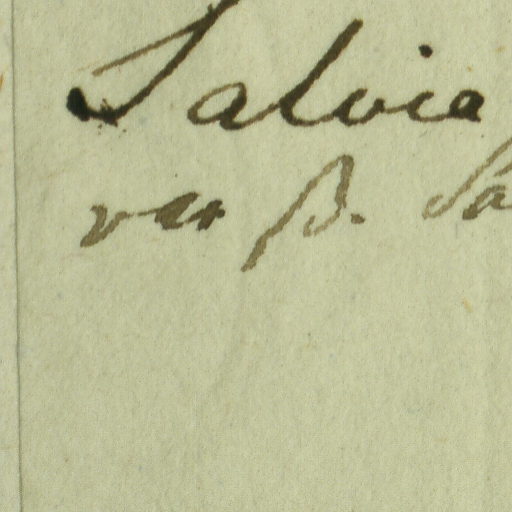 Salvia
var β. Sa